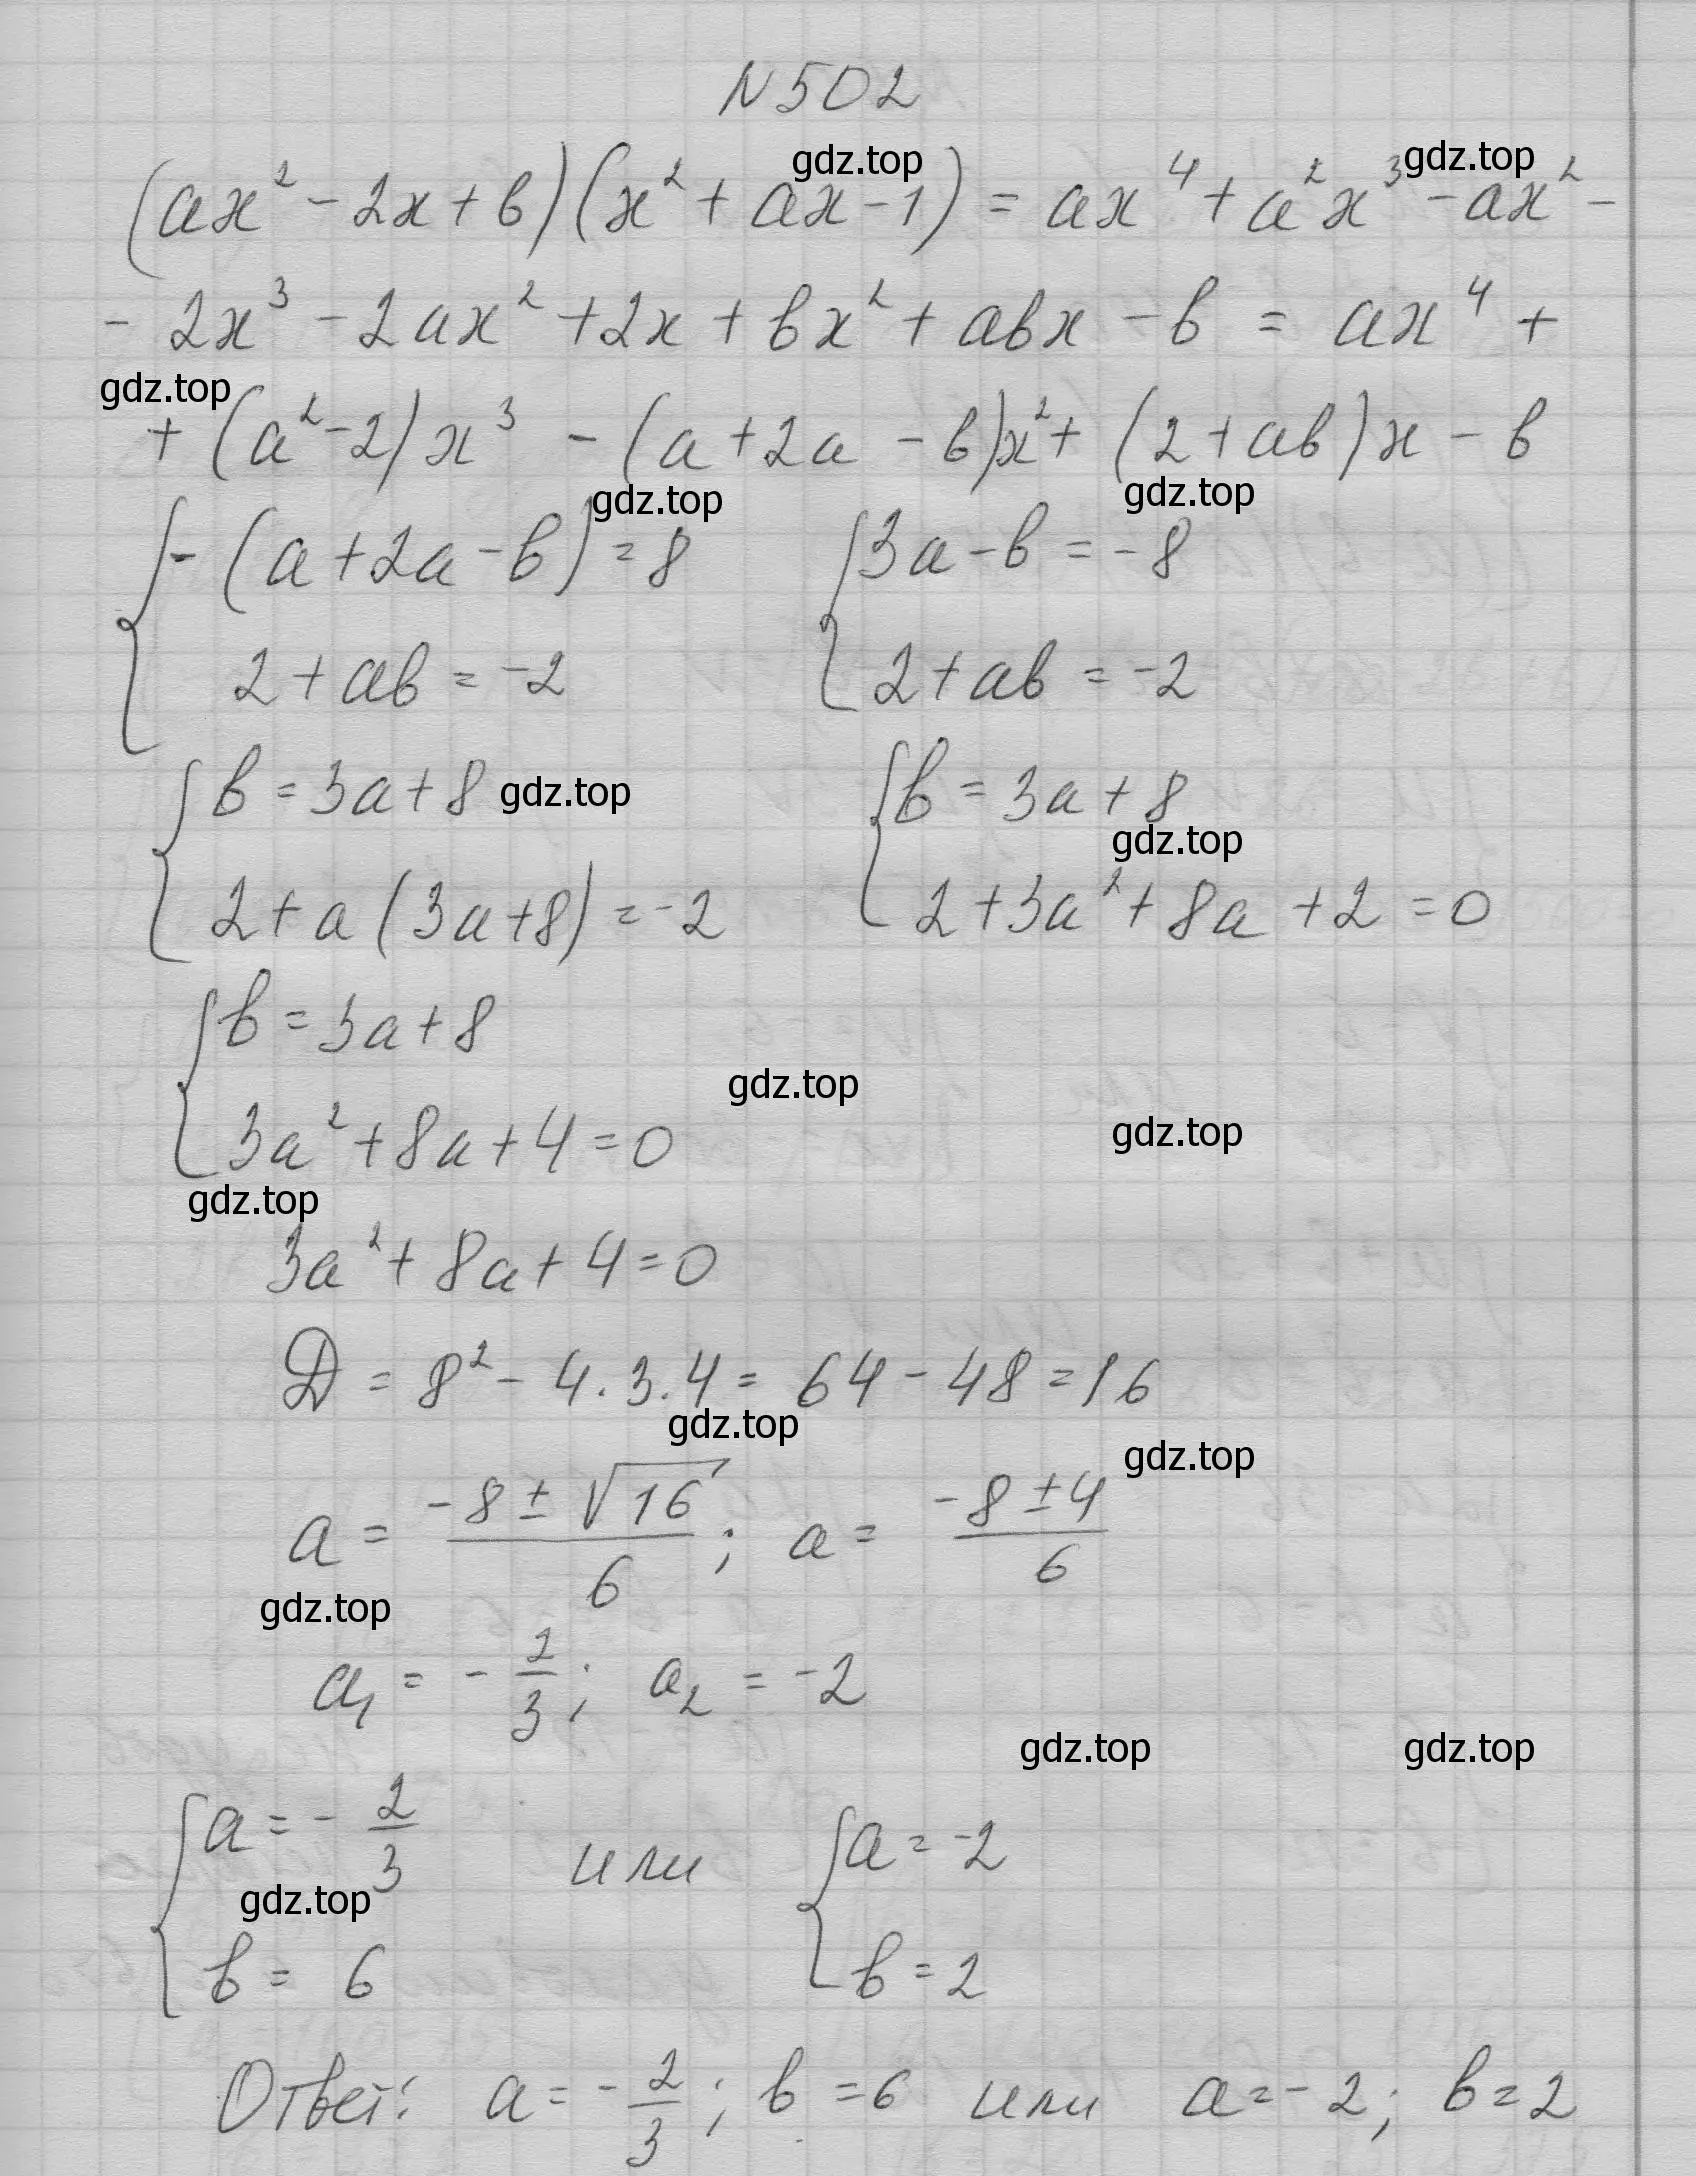 N 502
gdz.top gdz.top
(ax² - 2x + b)(x² + ax - 1) = ax⁴ + a²x³ - ax² -
- 2x³ - 2ax² + 2x + bx² + abx - b = ax⁴ +
gdz.top
+ (a² - 2)x³ - (a + 2a - b)x² + (2 + ab)x - b
gdz.top gdz.top
{ - (a + 2a - b) = 8 { 3a - b = -8
2 + ab = -2 2 + ab = -2
{ b = 3a + 8 gdz.top { b = 3a + 8
gdz.top
2 + a(3a + 8) = -2 2 + 3a² + 8a + 2 = 0
{ b = 3a + 8
gdz.top
gdz.top
3a² + 8a + 4 = 0
gdz.top
3a² + 8a + 4 = 0
D = 8² - 4 · 3 · 4 = 64 - 48 = 16
gdz.top gdz.top
a = (-8 ± √16)/6 ; a = (-8 ± 4)/6
gdz.top
a₁ = -2/3 ; a₂ = -2
gdz.top gdz.top
{ a = -2/3 или { a = -2
gdz.top
b = 6 b = 2
Ответ: a = -2/3 ; b = 6 или a = -2 ; b = 2